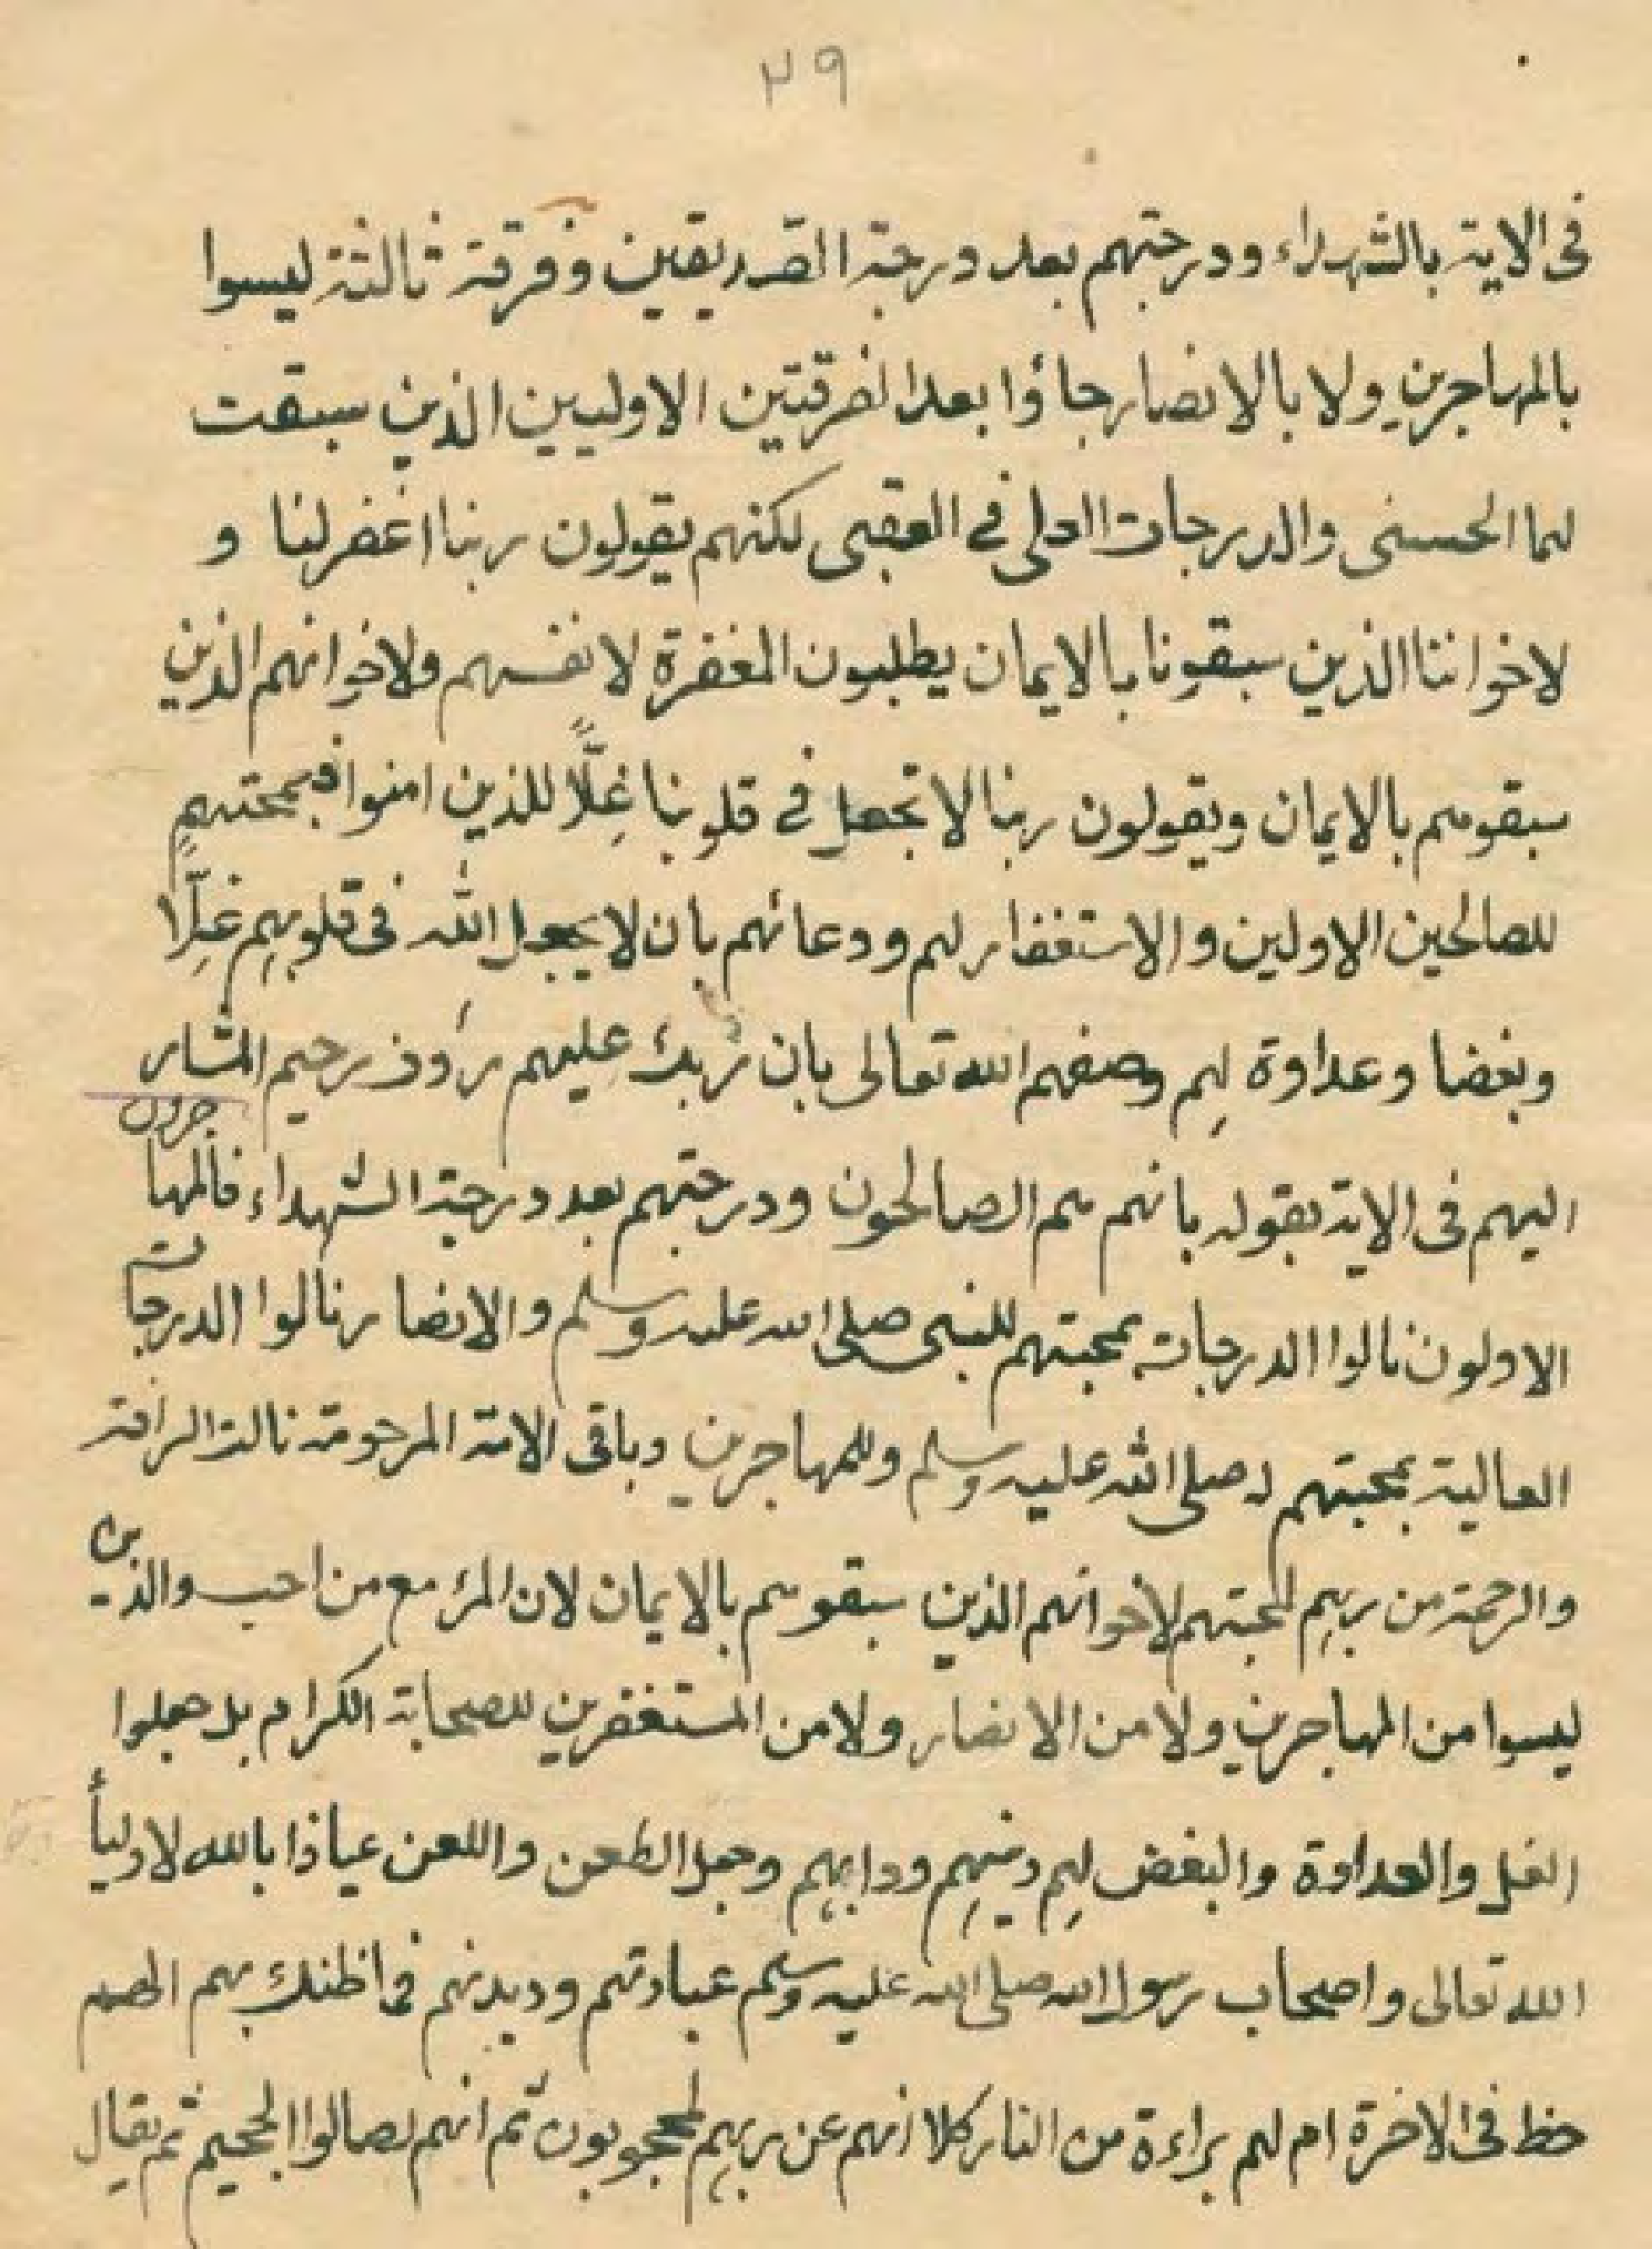 ٢٩
فى الاية بالشهداء ودرجتهم بعد درجة الصديقين وفرقة ثالثة ليسوا
بالمهاجرين ولا بالانصار جاؤا بعد الفرقتين الاوليين الذين سبقت
لهما الحسنى والدرجات العلى فى العقبى لكنهم يقولون ربنا اغفر لنا و
لاخواننا الذين سبقونا بالايمان يطلبون المغفرة لانفسهم ولاخوانهم الذين
سبقوهم بالايمان ويقولون ربنا لا تجعل فى قلوبنا غِلًّا للذين امنوا فبمحبتهم
للصالحين الاولين والاستغفار لهم ودعائهم بان لا يجعل الله فى قلوبهم غِلًّا
وبغضا وعداوة لهم وصفهم الله تعالى بان ربك عليهم رؤف رحيم المشار
اليهم فى الاية بقوله بانهم هم الصالحون ودرجتهم بعد درجة الشهداء فالمهاجرون
الاولون نالوا الدرجات بمحبتهم للنبى صلى الله عليه وسلم والانصار نالوا الدرجات
العالية بمحبتهم له صلى الله عليه وسلم وللمهاجرين وباقى الامة المرحومة نالت الرافة
والرحمة من ربهم لمحبتهم لاخوانهم الذين سبقوهم بالايمان لان المرء مع من احب والذين
ليسوا من المهاجرين ولا من الانصار ولا من المستغفرين للصحابة الكرام بل جعلوا
الغل والعداوة والبغض لهم دينهم ودابهم وجعل الطعن واللعن عياذا بالله لاوليأ
الله تعالى واصحاب رسول الله صلى الله عليه وسلم عبادتهم وديدنهم فما ظنك بهم الهم
حظ فى الاخرة ام لهم براءة من النار كلا انهم عن ربهم لمحجوبون ثم انهم لصالوا الجحيم ثم يقال